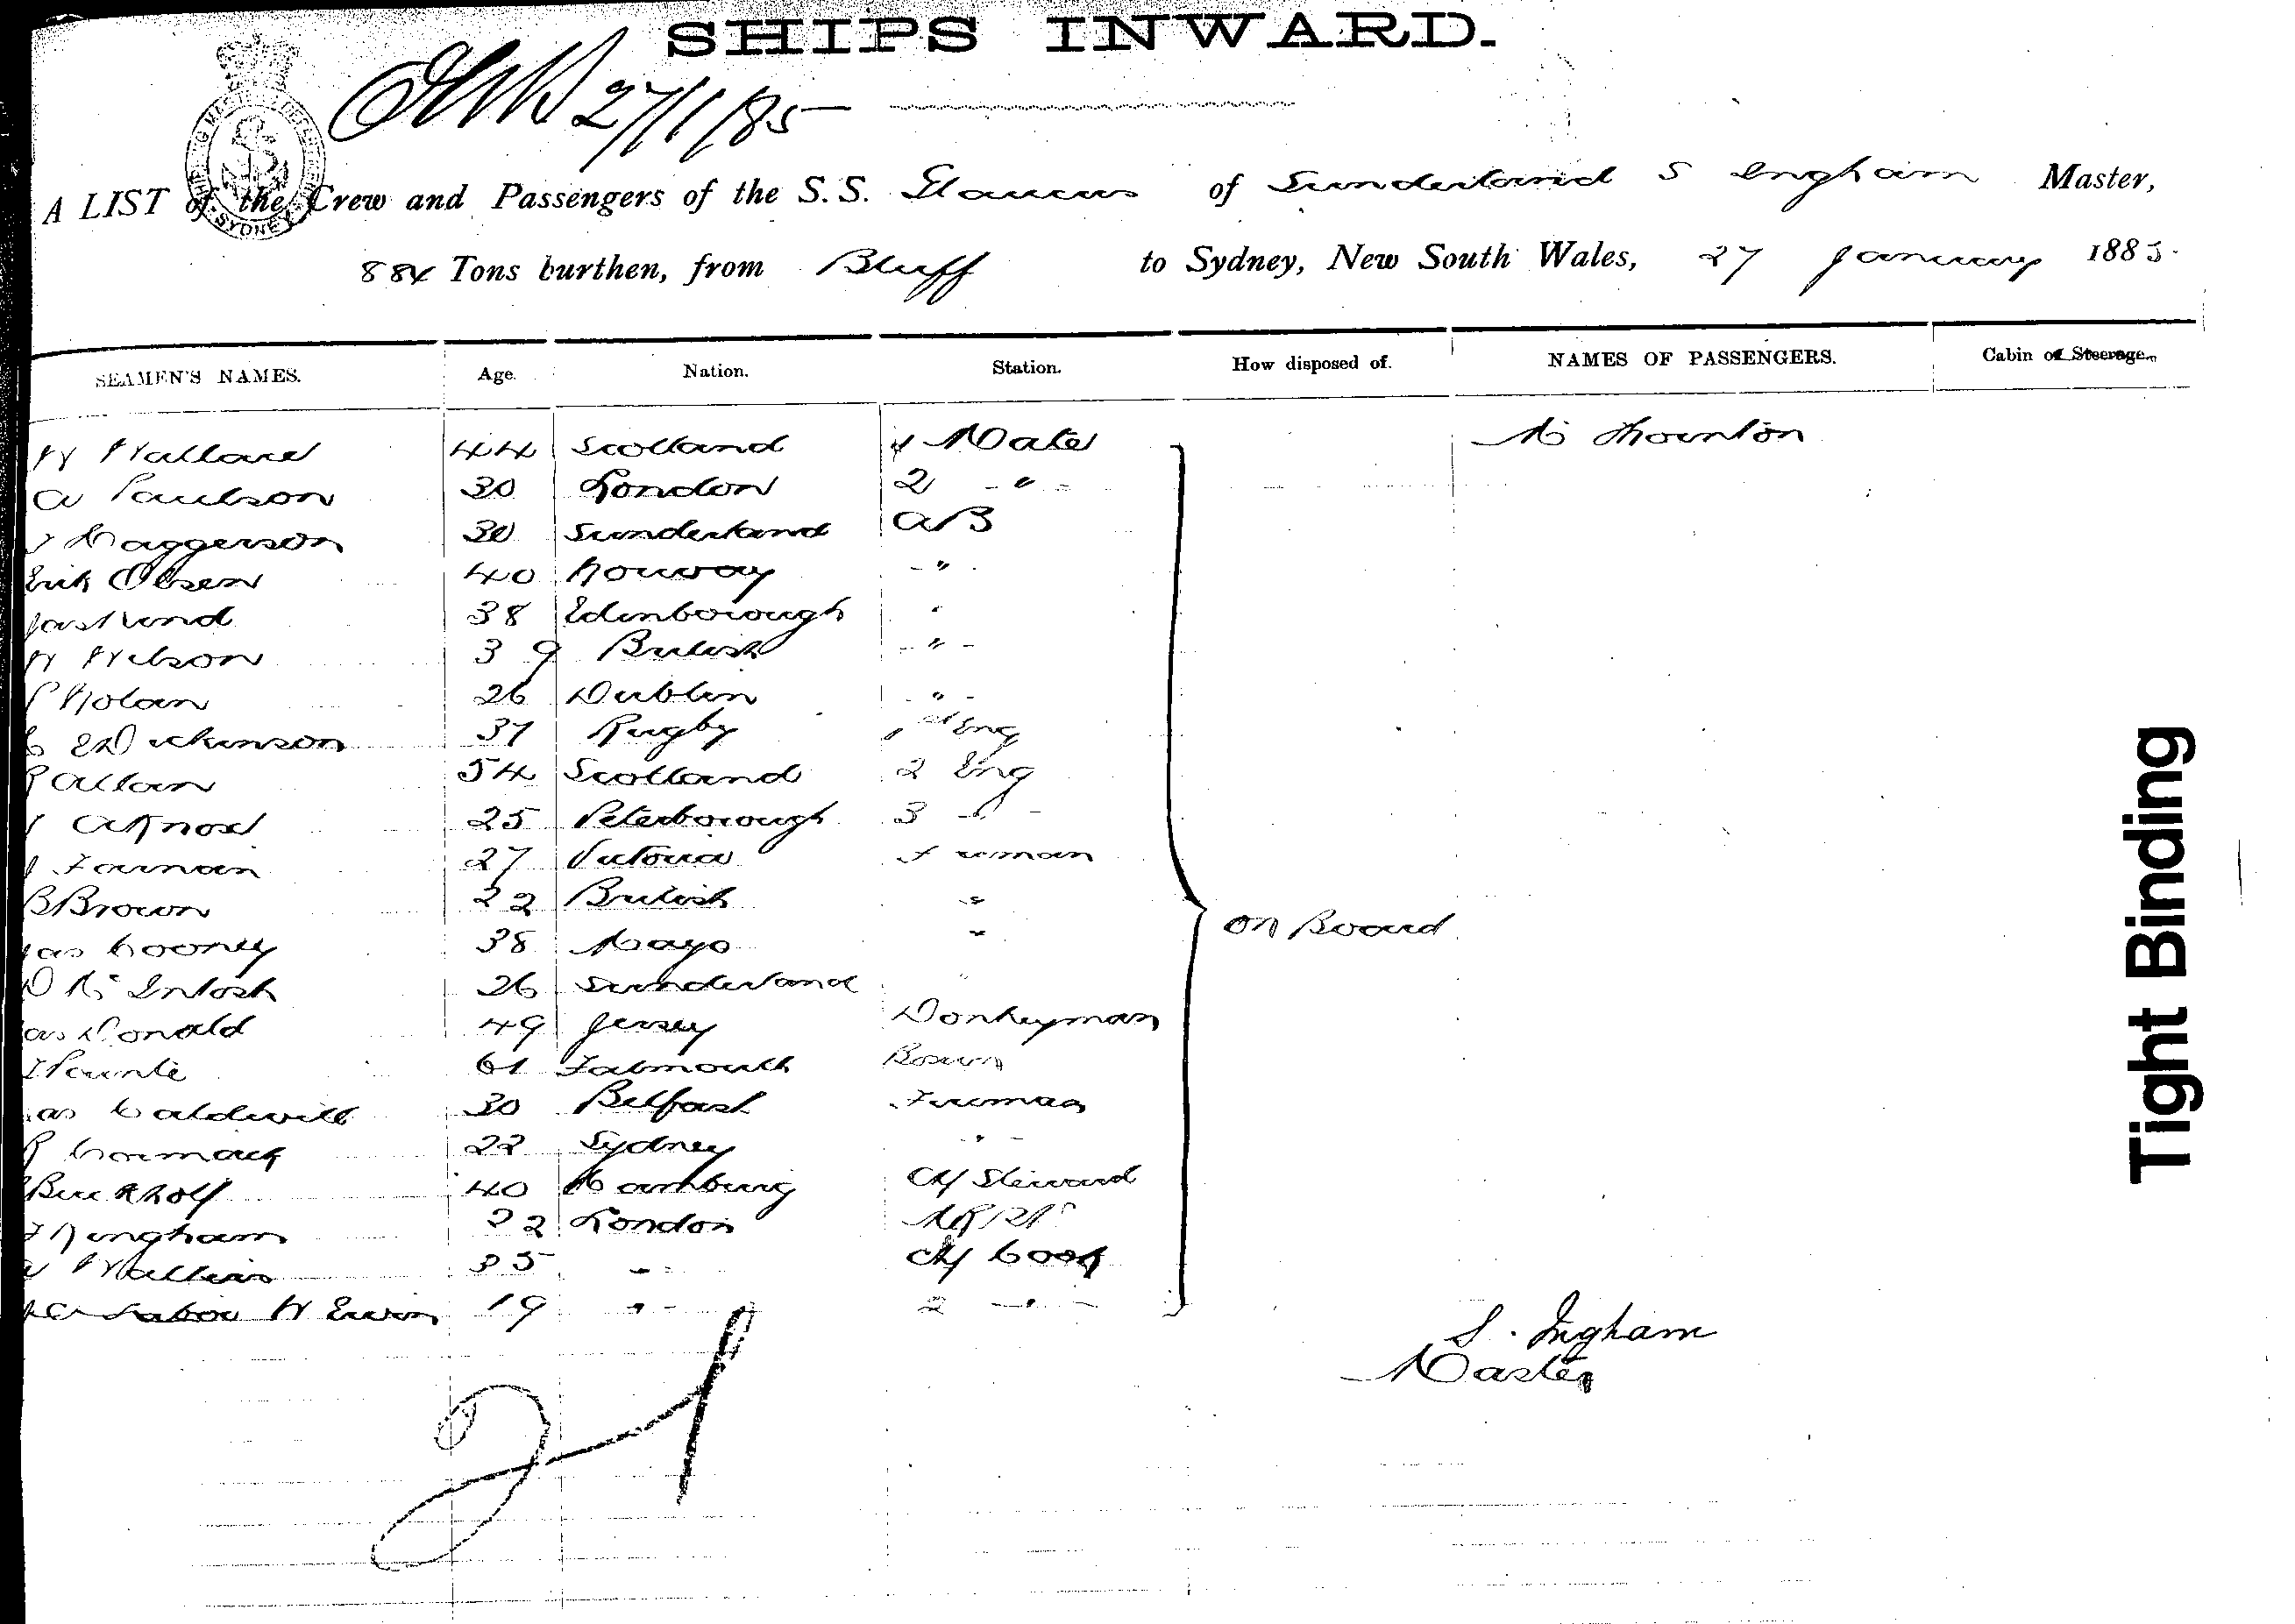 SHIPS INWARD.
27/1/85
A LIST of the Crew and Passengers of the S.S. Glaucus of Sunderland S Ingham Master,
884 Tons burthen, from Bluff to Sydney, New South Wales, 27 January 1885.
SEAMEN'S NAMES. Age. Nation. Station. How disposed of. NAMES OF PASSENGERS. Cabin or Steerage.
W Wallace 44 Scotland 1 Mate Mr Thornton
A Paulson 30 London 2 "
Haggerson 30 Sunderland AB
Erik Olsen 40 Norway "
38 Edinborough "
W Wilson 39 British "
P Nolan 26 Dublin "
C E Dickinson 37 Rugby 1st Eng
R Allan 54 Scotland 2 Eng
A Knox 25 Peterborough 3 "
Farnan 27 Victoria Fireman
B Brown 22 British "
Jas Cooney 38 Mayo " on Board
D McIntosh 26 Sunderland "
as Donald 49 Jersey Donkeyman
61 Falmouth Bosun
as Caldwell 30 Belfast Fireman
R Cormack 22 Sydney "
Buckholf 40 Hamburg Ch Steward
Ningham 22 London
35 " Ch Cook
W Erwin 19 " 2 "
S. Ingham
Master
Tight Binding
SYDNEY